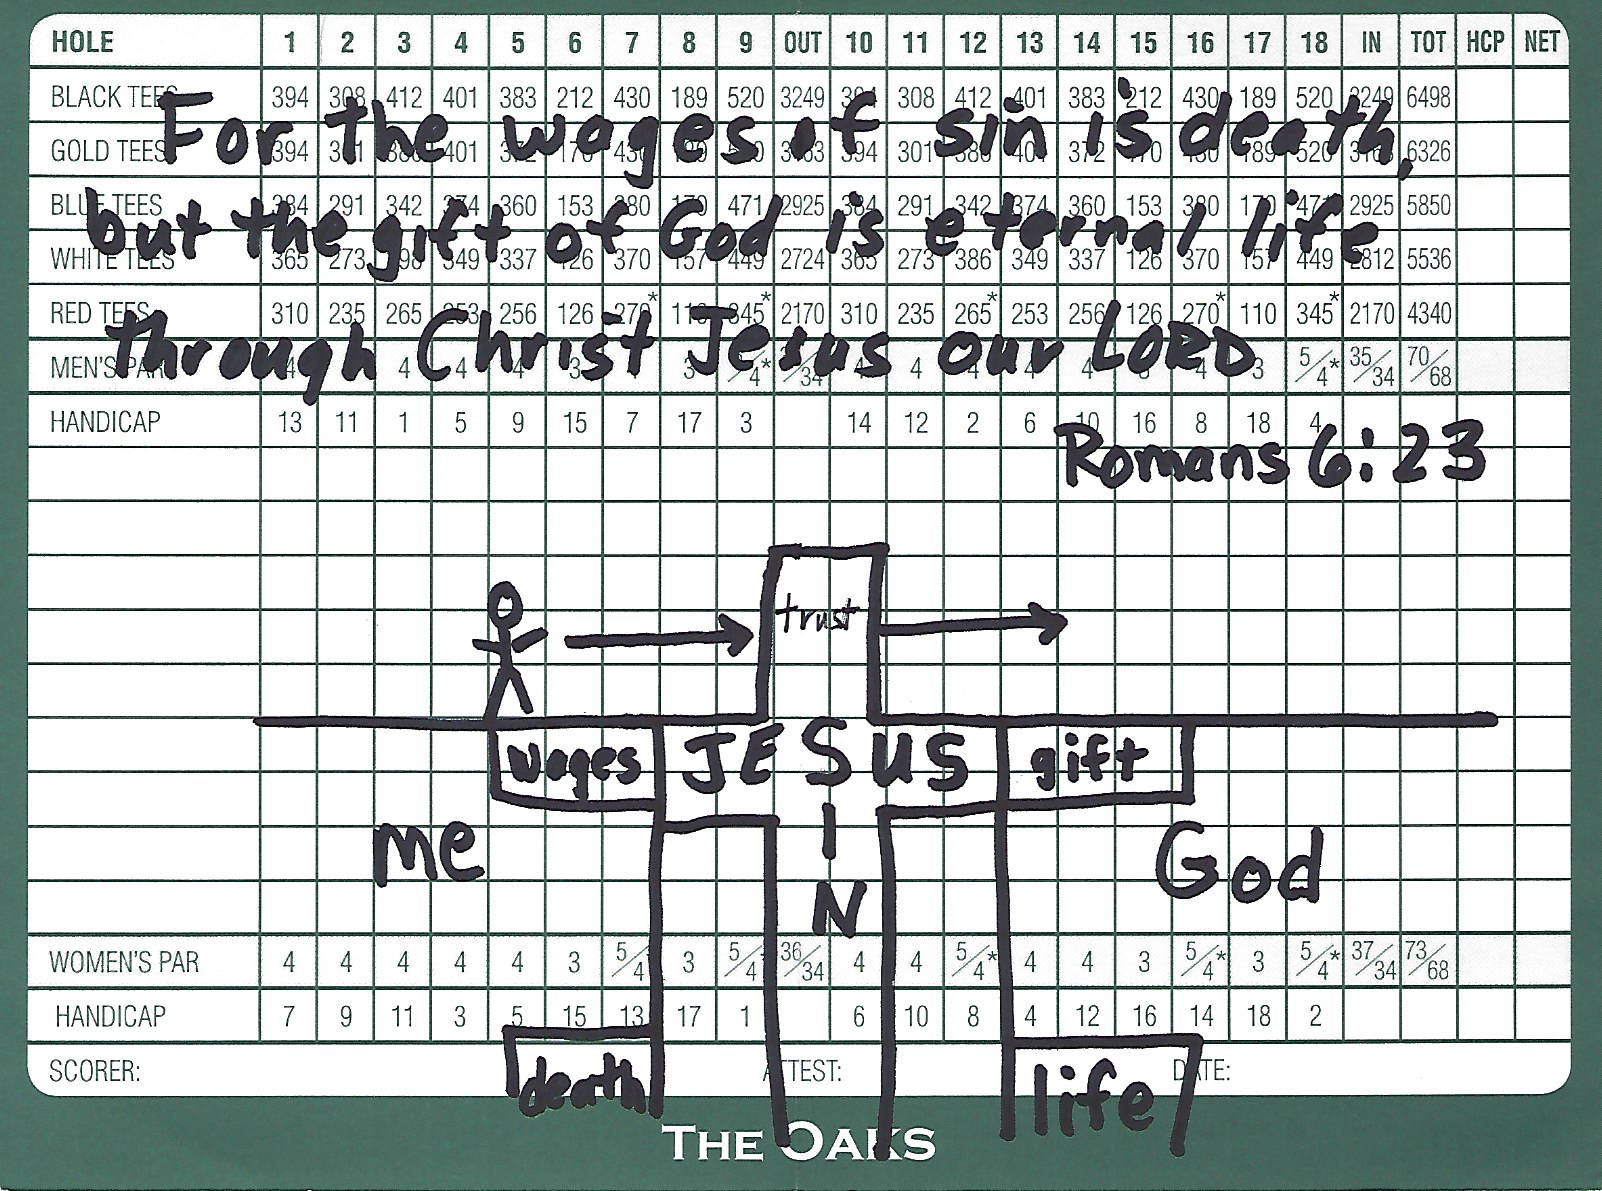 HOLE 1 2 3 4 5 6 7 8 9 OUT 10 11 12 13 14 15 16 17 18 IN TOT HCP NET
BLACK TEES 394 308 412 401 383 212 430 189 520 3249 394 308 412 401 383 212 430 189 520 3249 6498
For the wages of sin is death,
GOLD TEES 394 401 394 301 372 6326
BLUE TEES 384 291 342 374 360 153 380 179 471 2925 384 291 342 374 360 153 380 179 471 2925 5850
but the gift of God is eternal life
WHITE TEES 365 273 349 337 126 370 157 449 2724 365 273 386 349 337 126 370 157 449 2812 5536
RED TEES 310 235 265 253 256 126 270* 110 345* 2170 310 235 265* 253 256 126 270* 110 345* 2170 4340
through Christ Jesus our LORD
MEN'S PAR 4 4 4 4 3 3 5/4* 4 4 4 4 4 3 5/4* 35/34 70/68
HANDICAP 13 11 1 5 9 15 7 17 3 14 12 2 6 10 16 8 18 4
Romans 6:23
trust
wages JESUS gift
I
me God
N
WOMEN'S PAR 4 4 4 4 4 3 5/4* 3 5/4* 36/34 4 4 5/4* 4 4 3 5/4* 3 5/4* 37/34 73/68
HANDICAP 7 9 11 3 5 15 13 17 1 6 10 8 4 12 16 14 18 2
SCORER: ATTEST: DATE:
death life
THE OAKS